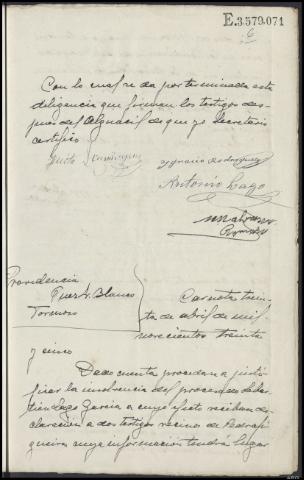 E.3579.071
6
Con lo cual se da por terminada esta
diligencia que firman los testigos des-
pues del Alguacil de que yo Secretario
certifico
Justo Ygnacio Rodriguez
Antonio Lago
Providencia
Juez Sr. Blanco
Carnota trein-
ta de abril de mil
novecientos treinta
y cinco
Dada cuenta procedase a justi-
ficar la insolvencia del procesado Sebas-
tian Lago Garcia a cuyo efecto reciban de-
claracion a dos testigos vecinos de Pedrafi-
gueira cuya informacion tendrá lugar